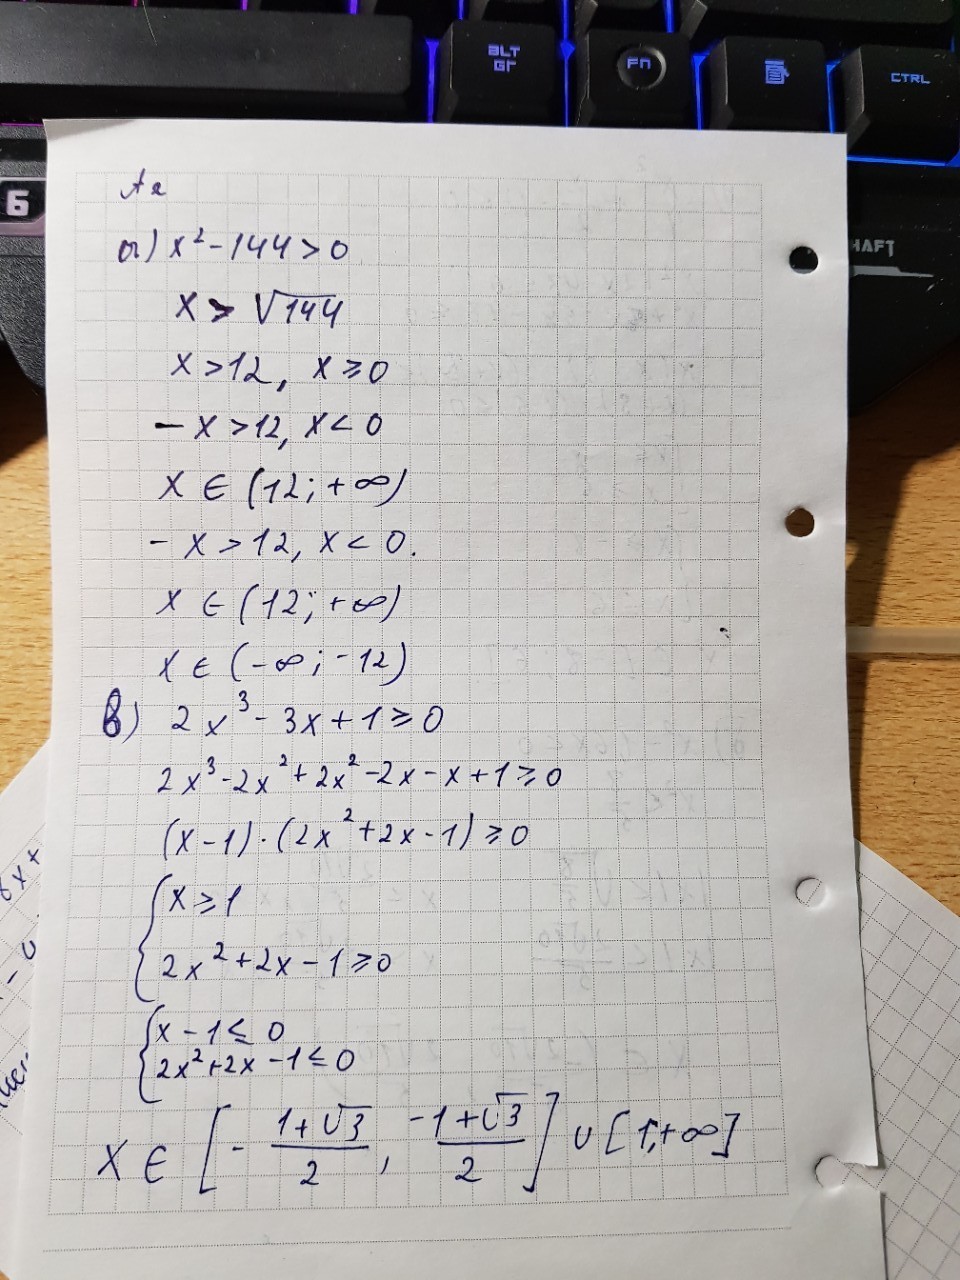 ALT GR
FN
CTRL
Б
HAFT
а) x² - 144 > 0
x > √144
x > 12, x ≥ 0
- x > 12, x < 0
x ∈ (12; +∞)
- x > 12, x < 0.
x ∈ (12; +∞)
x ∈ (-∞; -12)
в) 2x³ - 3x + 1 ≥ 0
2x³ - 2x² + 2x² - 2x - x + 1 ≥ 0
(x - 1) · (2x² + 2x - 1) ≥ 0
{ x ≥ 1
2x² + 2x - 1 ≥ 0
{ x - 1 ≤ 0
2x² + 2x - 1 ≤ 0
x ∈ [ - (1+√3)/2 , (-1+√3)/2 ] ∪ [1; +∞]